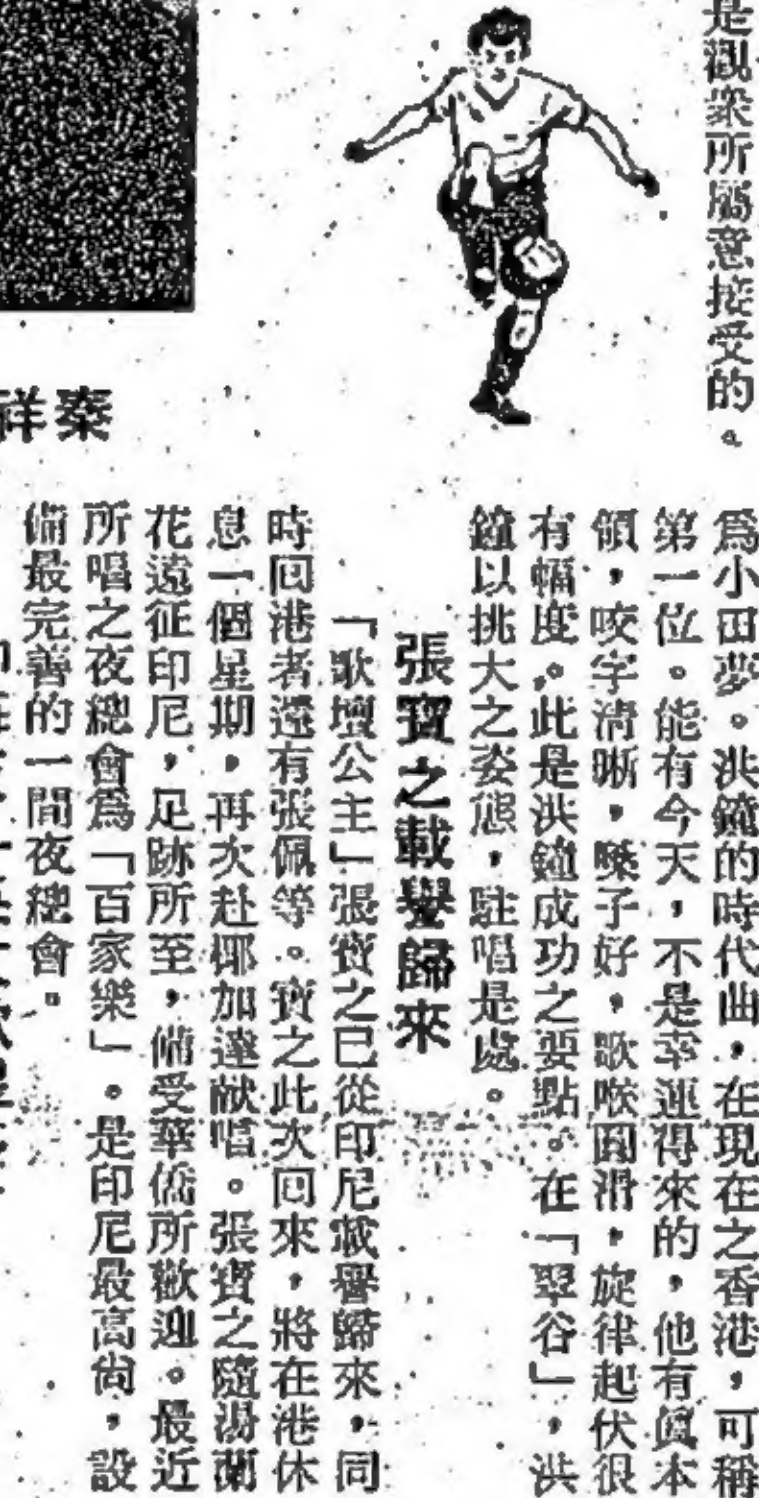 是觀衆所屬意接受的。
爲小田夢。洪鐘的時代曲，在現在之香港，可稱
第一位。能有今天，不是幸運得來的，他有眞本
領，咬字清晰，嗓子好，歌喉圓滑，旋律起伏很
有幅度。此是洪鐘成功之要點。在「翠谷」，洪
鐘以挑大之姿態，駐唱是處。
張寶之載譽歸來
「歌壇公主」張寶之已從印尼載譽歸來，同
時回港者還有張佩等。寶之此次回來，將在港休
息一個星期，再次赴椰加達献唱。張寶之隨湯蘭
花遠征印尼，足跡所至，備受華僑所歡迎。最近
所唱之夜總會爲「百家樂」。是印尼最高尙，設
備最完善的一間夜總會。
秦祥